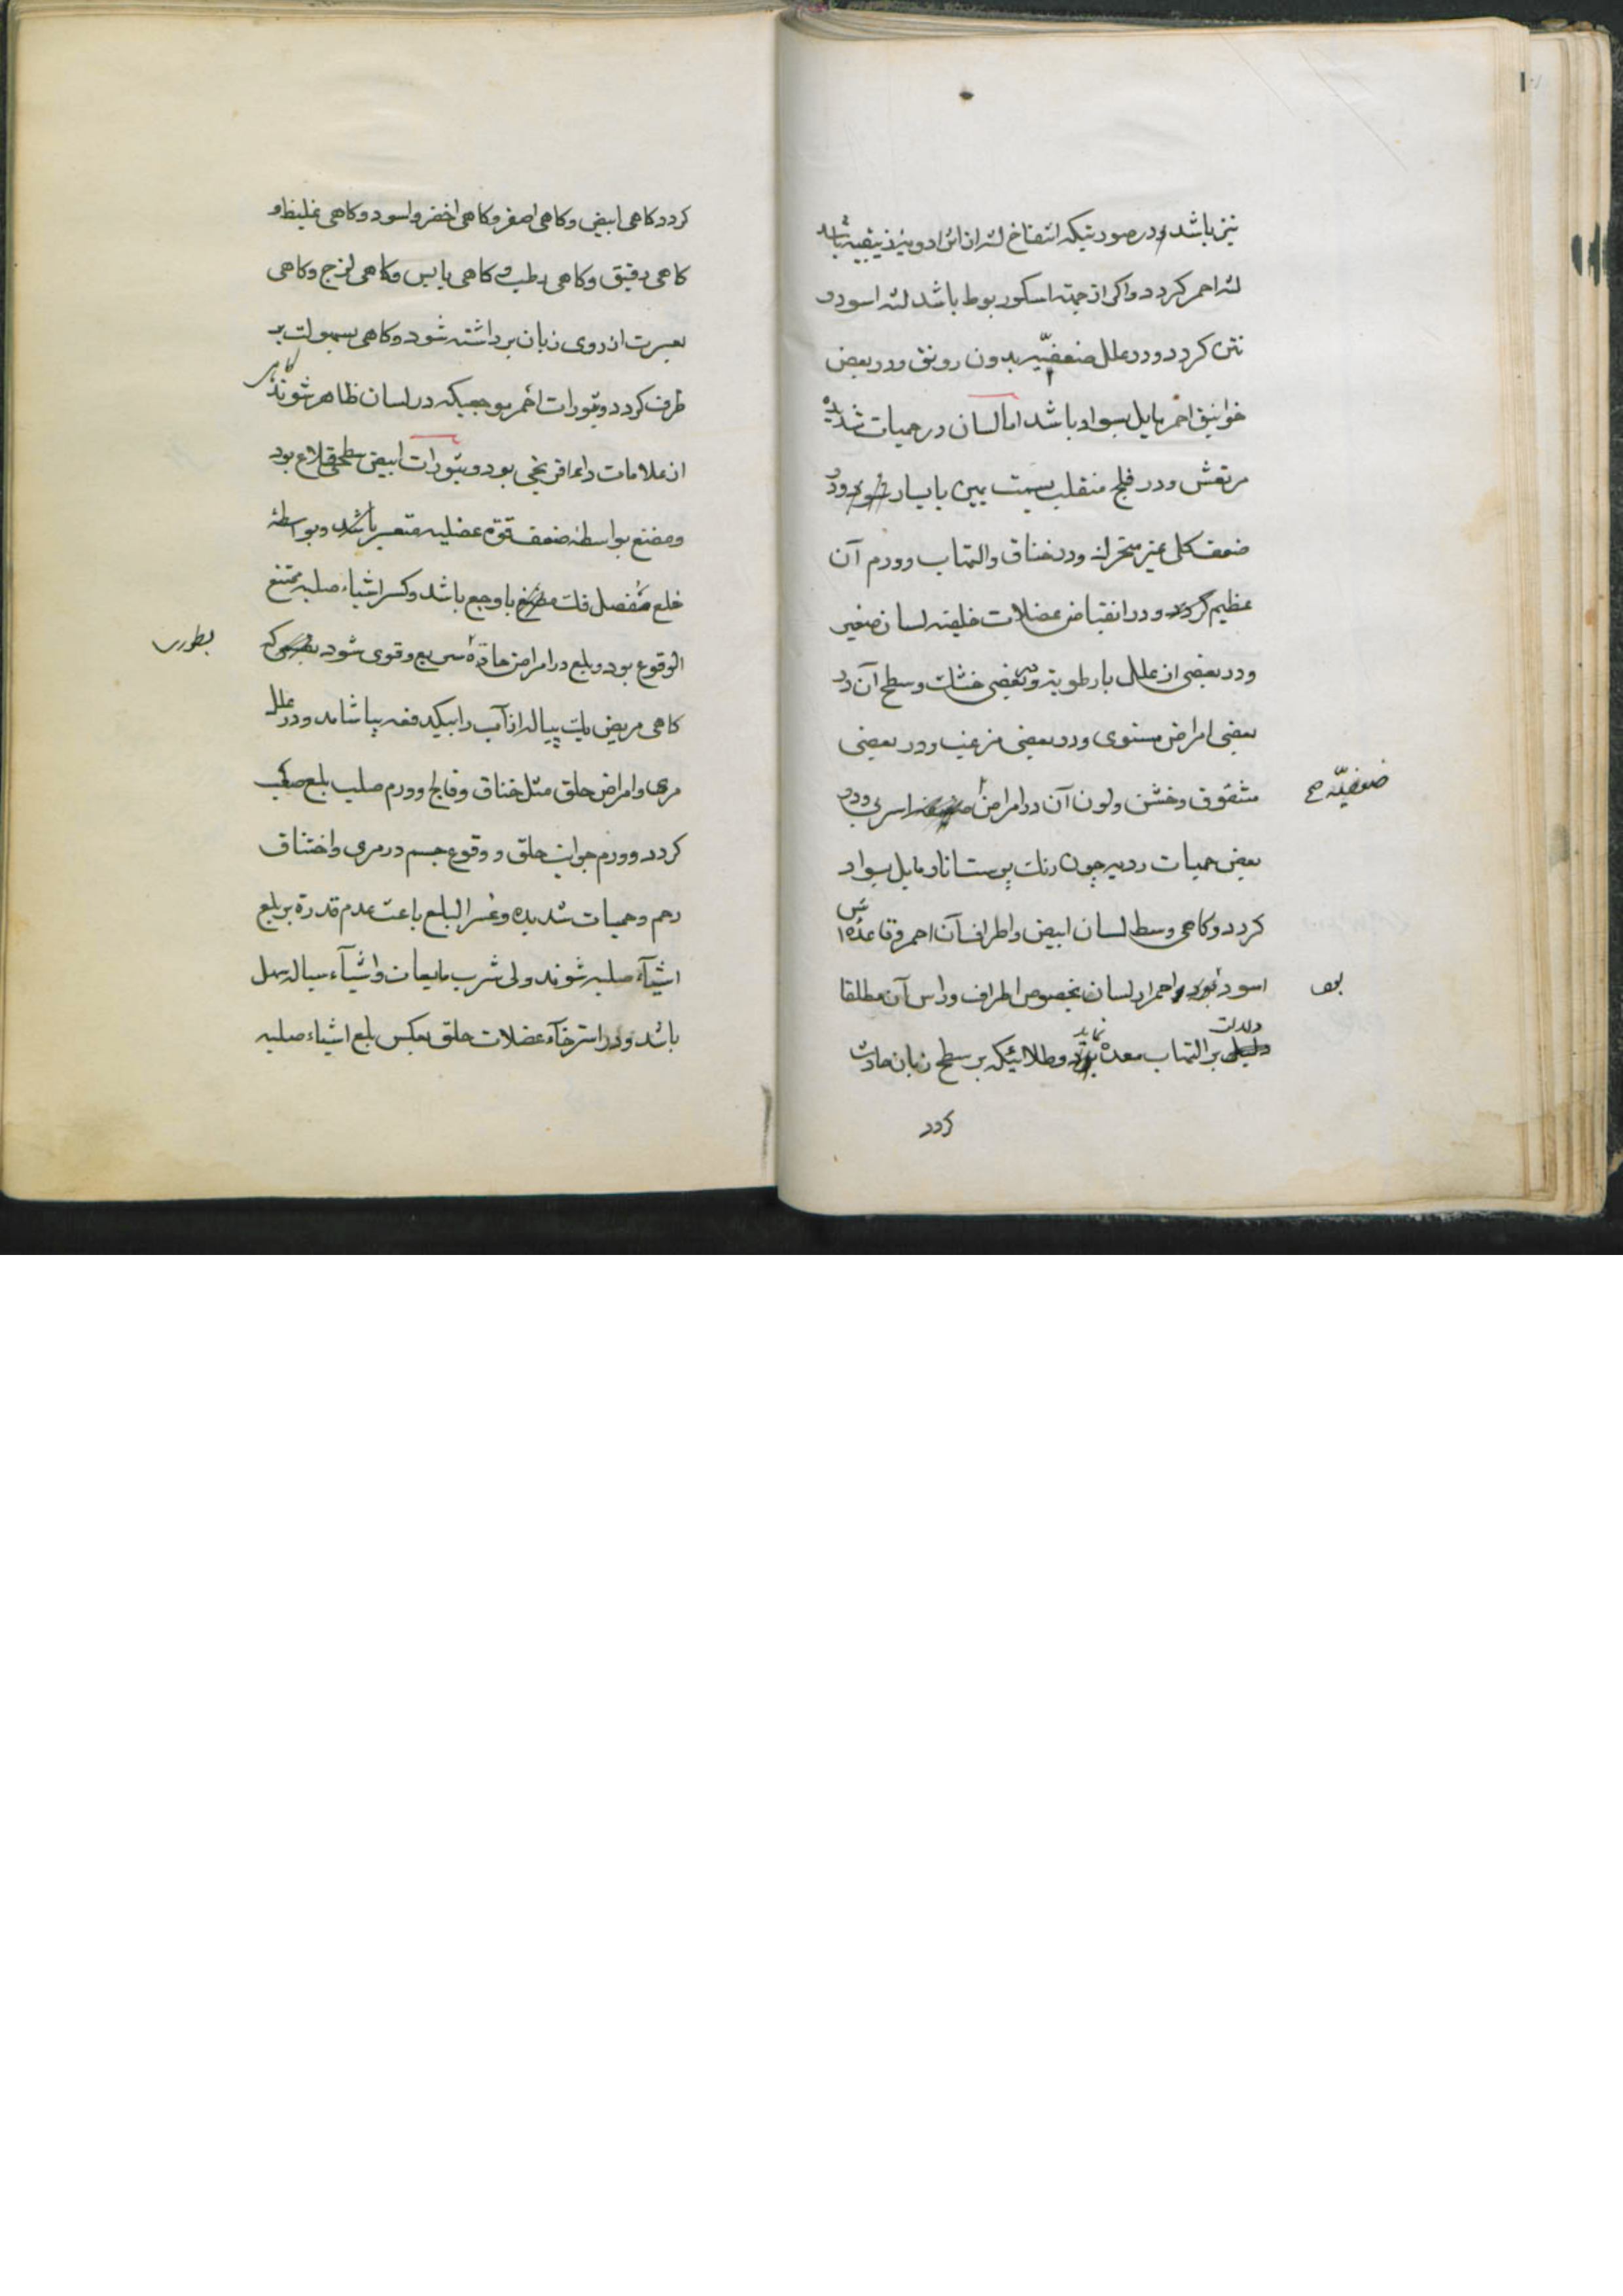 نیز باشد و در صورتیکه انتفاخ لثه از اثر ادویه زیبقیه باشد
لثه احمر کردد و اکر از جهته اسکوربوط باشد لثه اسود و
نتن کردد و در علل ضعفیّه بدون رونق و در بعض
خوانیق احمر مایل بسواد باشد اما لسان در حمیات شدیده
مرتعش و در فلج منقلب بسمت یمین یا یسار شود و در
ضعف کلی غیر متحرک و در خناق و التهاب و ورم آن
عظیم کردد و در انقباض عضلات خلیفه لسان صغیر
و در بعضی از علل با رطوبة و در بعضی خشک و سطح آن در
بعضی امراض مستوی و در بعضی مزغب و در بعضی
مشقوق و خشن و لون آن در امراض اسربی و در
ضعفیّه صح
بعض حمیات ردیه چون رنک پوست انار مایل بسواد
کردد و کاهی وسط لسان ابیض و اطراف آن احمر و قاعده اش
اسود بود و احمرار لسان بخصوص اطراف و راس آن مطلقا
دلالت بر التهاب معده نماید و طلائیکه بر سطح زبان حادث
کردد
کردد کاهی ابیض و کاهی اصفر و کاهی اخضر و اسود و کاهی غلیظ و
کاهی رقیق و کاهی رطب و کاهی یابس و کاهی لزج و کاهی
بعسرت از روی زبان برداشته شود و کاهی بسهولت بر
طرف کردد و بثورات احمر موجعیکه در لسان ظاهر شوند کاهی
از علامات داء افرنجی بود و بثورات ابیض سطحی قلاع بود
و مضغ بواسطه ضعف قوه عضلیه متعسر باشد و بواسطه
خلع مفصل فک با وجع باشد و کسر اشیاء صلبه ممتنع
الوقوع بود و بلع در امراض حاده سریع و قوی شود که
بطوری
کاهی مریض یک پیاله از آب را بیکدفعه بیاشامد و در علل
مری و امراض حلق مثل خناق و فالج و ورم صلب بلع صعب
کردد و ورم جوانب حلق و وقوع جسم در مری و اختناق
رحم و حمیات شدیده و عسر البلع باعث عدم قدرة بر بلع
اشیآء صلبه شوند ولی شرب مایعات و اشیآء سیاله سهل
باشد و در استرخآء عضلات حلق بعکس بلع اشیاء صلبه